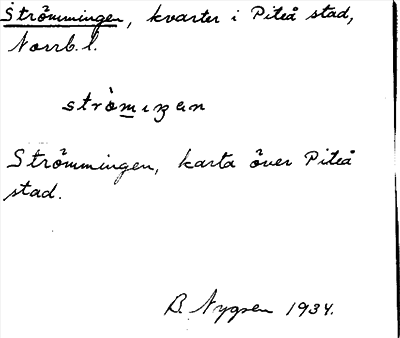 Strömmingen, kvarter i Piteå stad,
Norrb. l.
strömiŋen
Strömmingen, karta över Piteå
stad.
B. Nygren 1934.